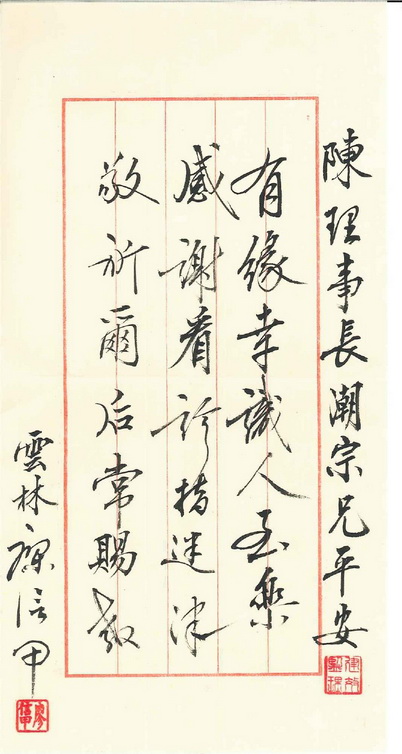 陳理事長潮宗兄平安
有緣幸識人至樂
感謝看診指迷津
敬祈爾后常賜教
雲林廖信甲